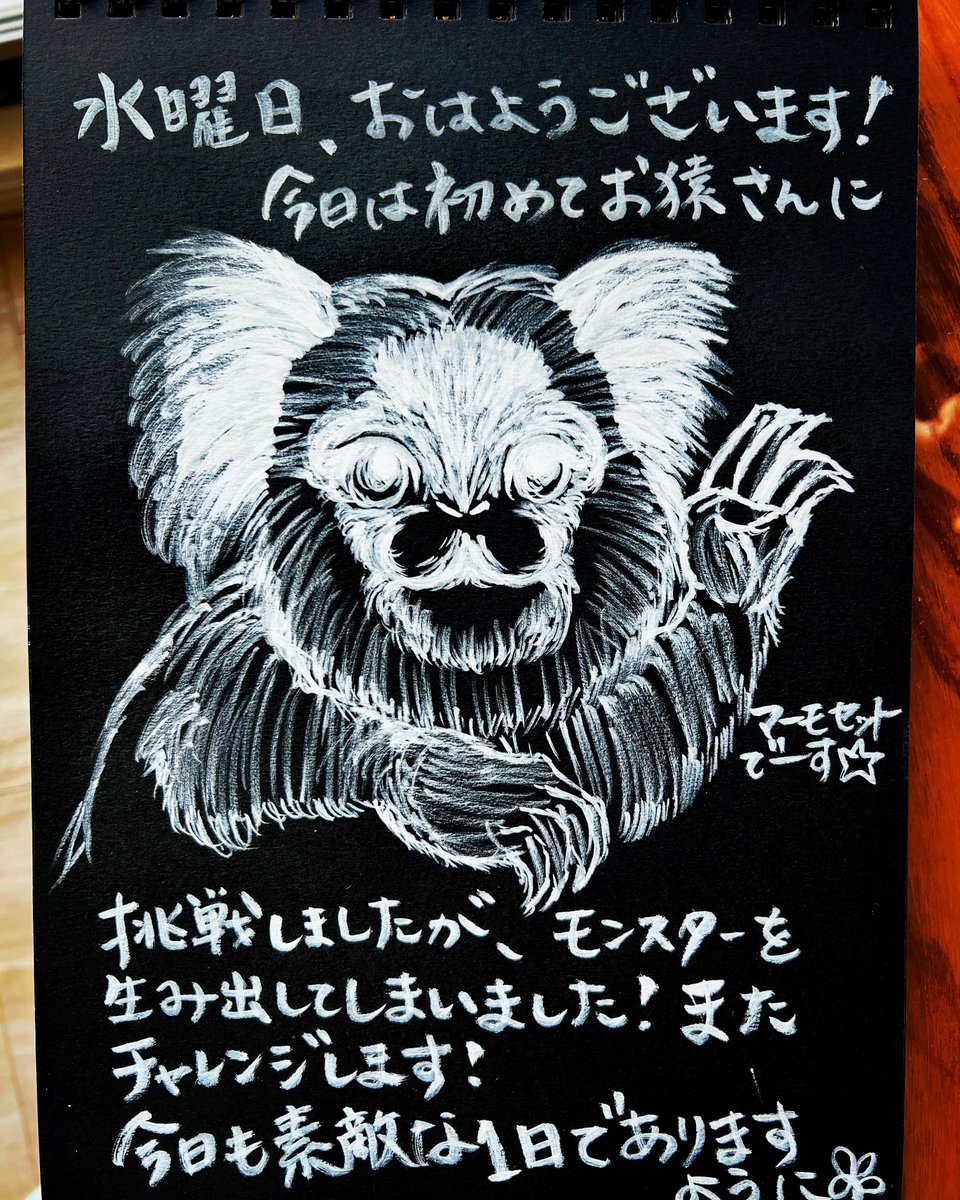 水曜日、おはようございます!
今日は初めてお猿さんに
マーモセット
でーす☆
挑戦しましたが、モンスターを
生み出してしまいました!また
チャレンジします!
今日も素敵な1日であります
ように